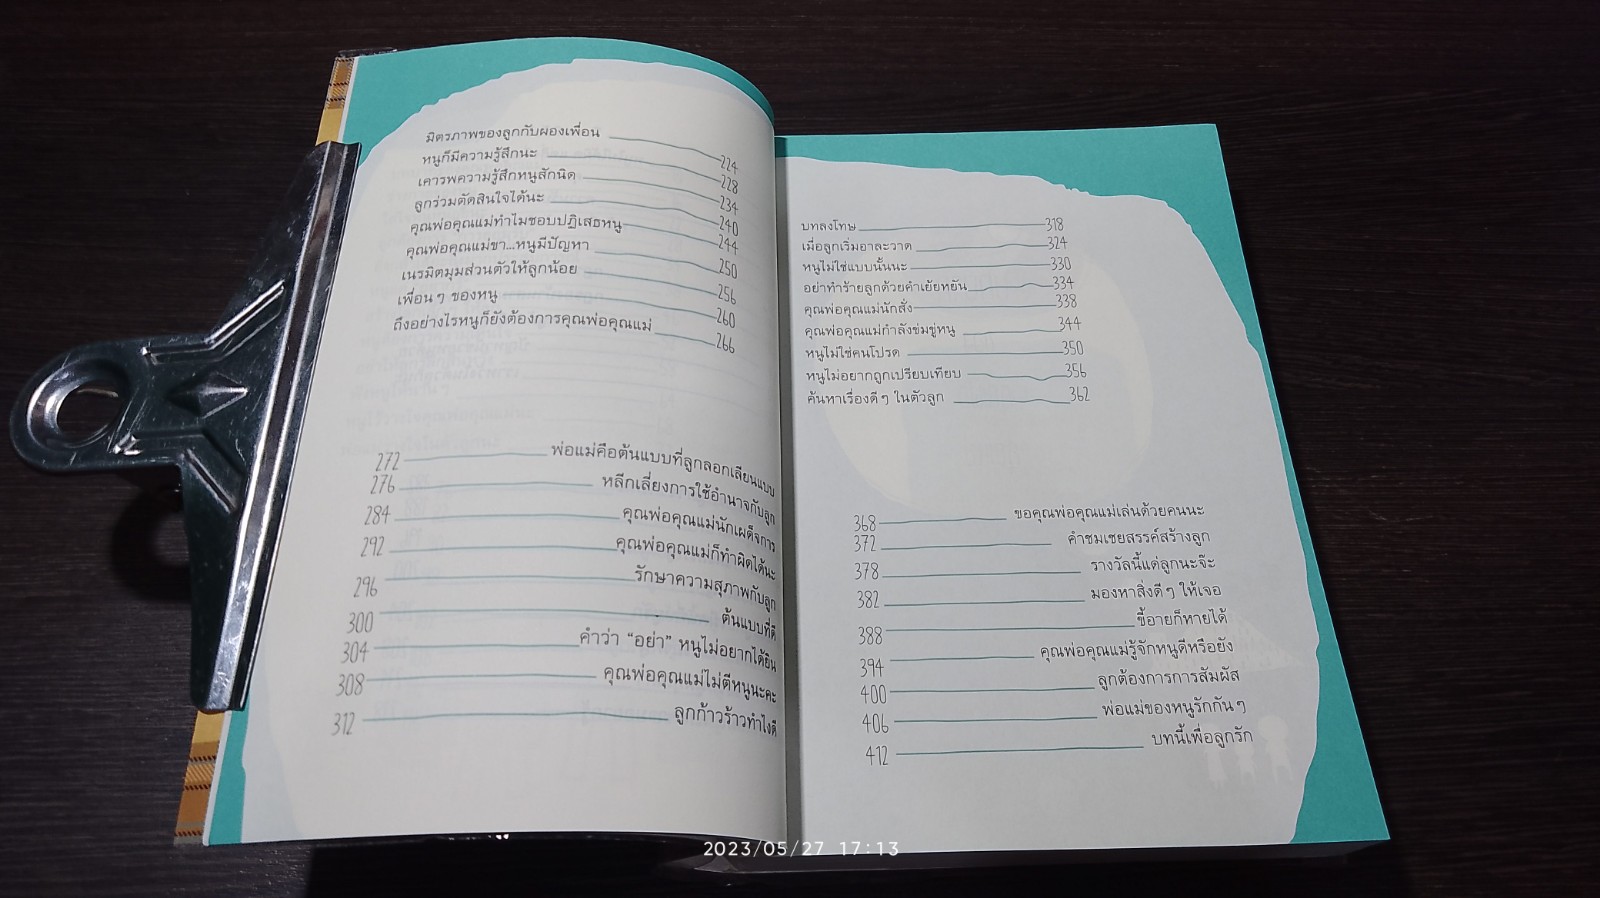 มิตรภาพของลูกกับผองเพื่อน 224
หนูก็มีความรู้สึกนะ 228
เคารพความรู้สึกหนูสักนิด 234
ลูกร่วมตัดสินใจได้นะ 240
คุณพ่อคุณแม่ทำไมชอบปฏิเสธหนู 244
คุณพ่อคุณแม่ขา...หนูมีปัญหา 250
เนรมิตมุมส่วนตัวให้ลูกน้อย 256
เพื่อนๆ ของหนู 260
ถึงอย่างไรหนูก็ยังต้องการคุณพ่อคุณแม่ 266
272 พ่อแม่คือต้นแบบที่ลูกลอกเลียนแบบ
276 หลีกเลี่ยงการใช้อำนาจกับลูก
284 คุณพ่อคุณแม่นักเผด็จการ
292 คุณพ่อคุณแม่ก็ทำผิดได้นะ
296 รักษาความสุภาพกับลูก
300 ต้นแบบที่ดี
304 คำว่า “อย่า” หนูไม่อยากได้ยิน
308 คุณพ่อคุณแม่ไม่ตีหนูนะคะ
312 ลูกก้าวร้าวทำไงดี
บทลงโทษ 318
เมื่อลูกเริ่มอาละวาด 324
หนูไม่ใช่แบบนั้นนะ 330
อย่าทำร้ายลูกด้วยคำเย้ยหยัน 334
คุณพ่อคุณแม่นักสั่ง 338
คุณพ่อคุณแม่กำลังข่มขู่หนู 344
หนูไม่ใช่คนโปรด 350
หนูไม่อยากถูกเปรียบเทียบ 356
ค้นหาเรื่องดีๆ ในตัวลูก 362
368 ขอคุณพ่อคุณแม่เล่นด้วยคนนะ
372 คำชมเชยสรรค์สร้างลูก
378 รางวัลนี้แด่ลูกนะจ๊ะ
382 มองหาสิ่งดีๆ ให้เจอ
388 ขี้อายก็หายได้
394 คุณพ่อคุณแม่รู้จักหนูดีหรือยัง
400 ลูกต้องการการสัมผัส
406 พ่อแม่ของหนูรักกันๆ
412 บทนี้เพื่อลูกรัก
2023/05/27 17:13